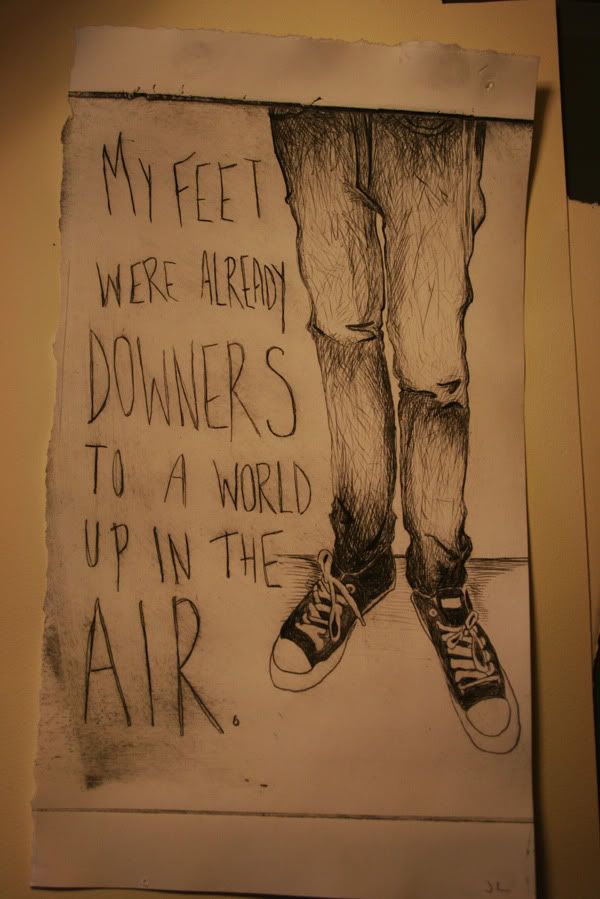 MY FEET
WERE ALREADY
DOWNERS
TO A WORLD
UP IN THE
AIR.
JL